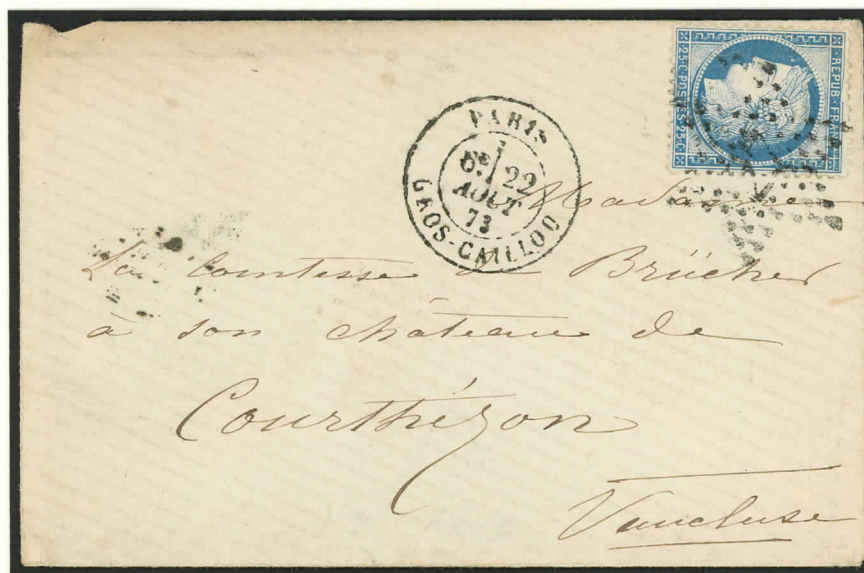 REPUB·FRANC
25·C·POSTES·25·C
PARIS
6E 22
AOUT
73
GROS-CAILLOU
Madame
La Comtesse de Brücher
à son château de
Courthézon
Vaucluse